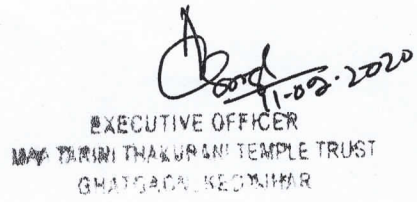 11-02-2020
EXECUTIVE OFFICER
MAA TARINI THAKURANI TEMPLE TRUST
GHATGAON, KEONJHAR